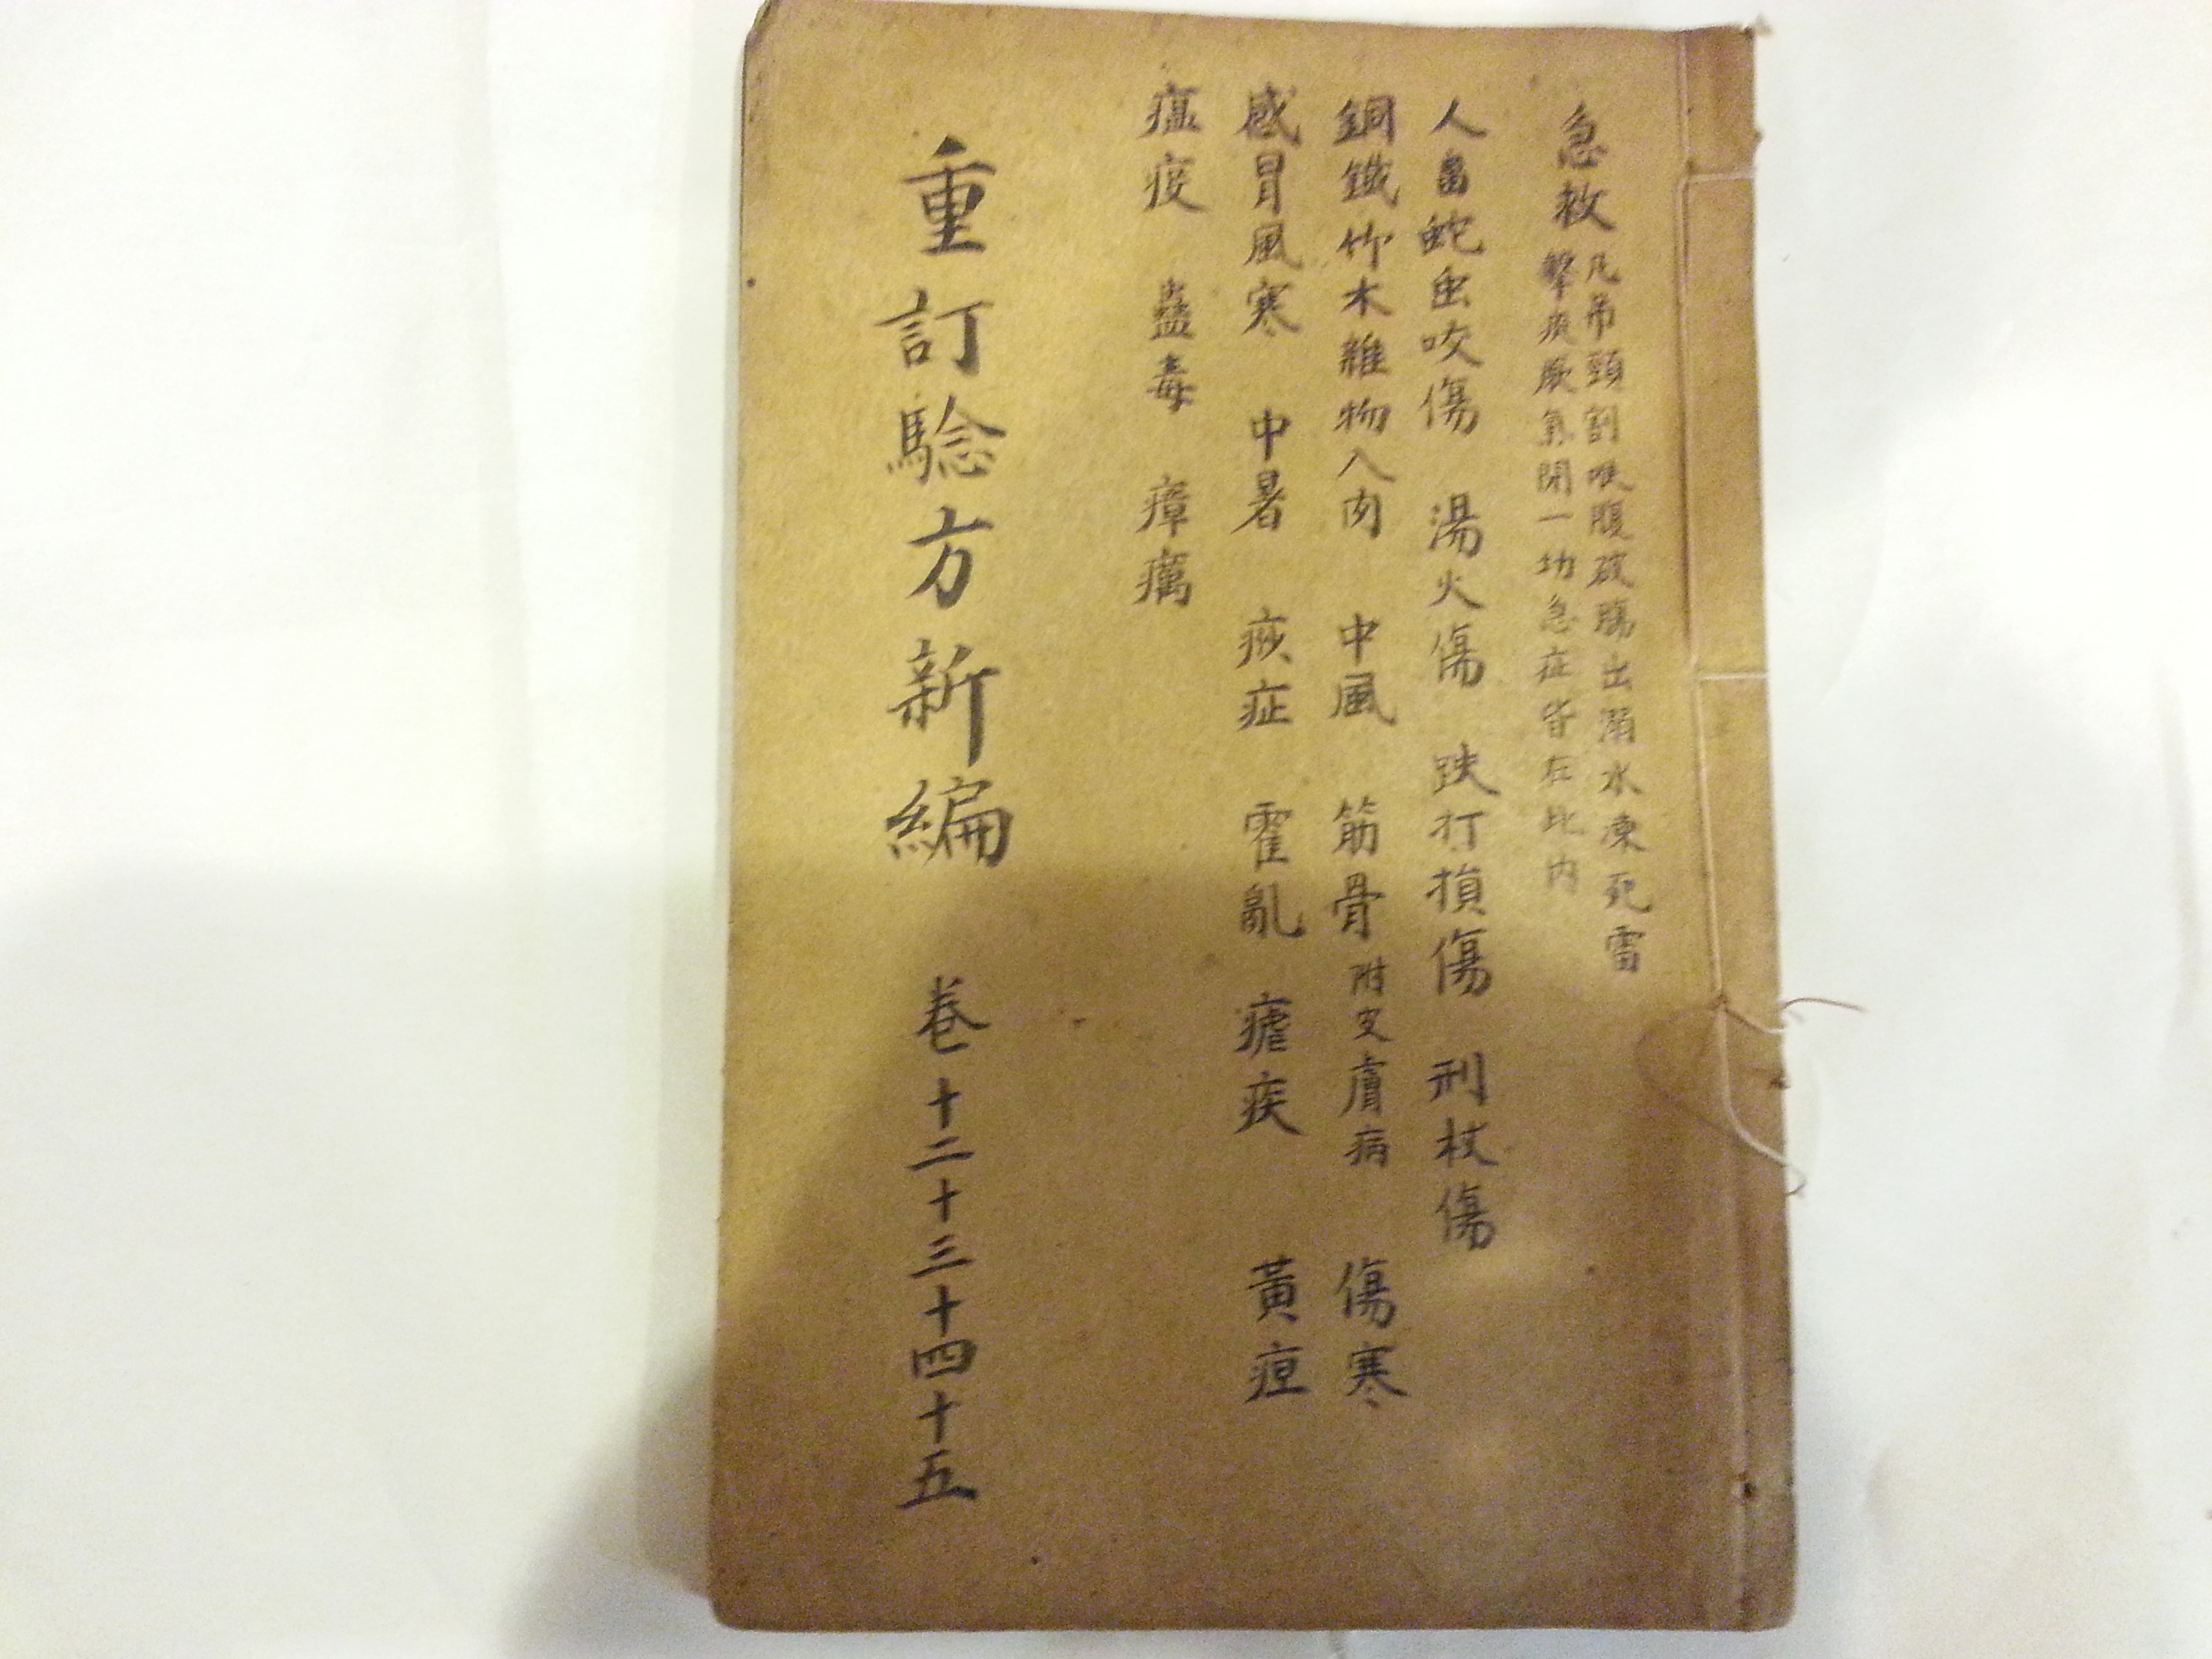 急救 凡吊頸割喉腹破腸出溺水凍死雷
擊痰厥氣閉一切急症皆在此內
人畜蛇虫咬傷 湯火傷 跌打損傷 刑杖傷
銅鐵竹木雜物入肉 中風 筋骨 附皮膚病 傷寒
感冒風寒 中暑 痧症 霍亂 瘧疾 黃疸
瘟疫 蠱毒 瘴癘
重訂驗方新編 卷十二十三十四十五